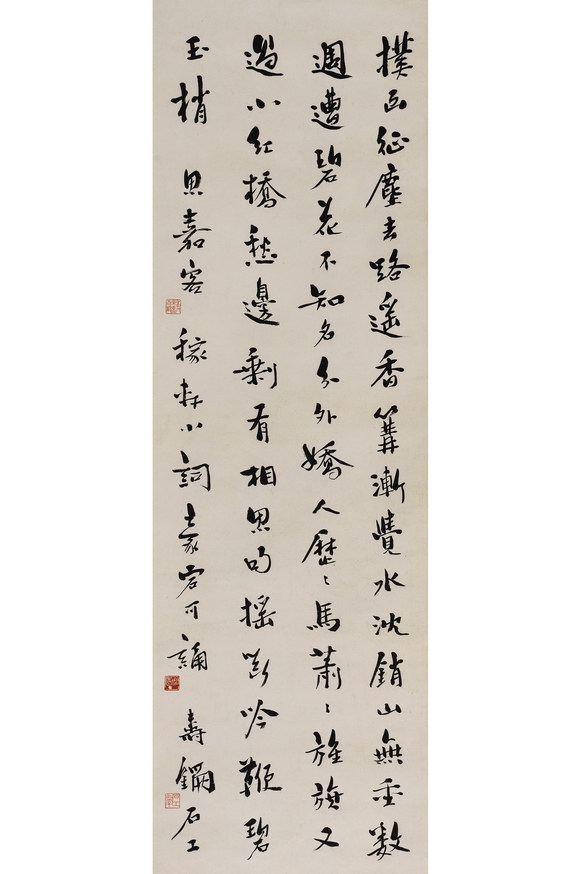 撲面征塵去路遙香篝漸覺水沈銷山無重數
週遭碧花不知名分外嬌人歷〻馬蕭〻旌旗又
過小紅橋愁邊剩有相思句搖斷吟鞭碧
玉梢 思嘉客 稼軒小詞豪宕可誦 壽鑈石工